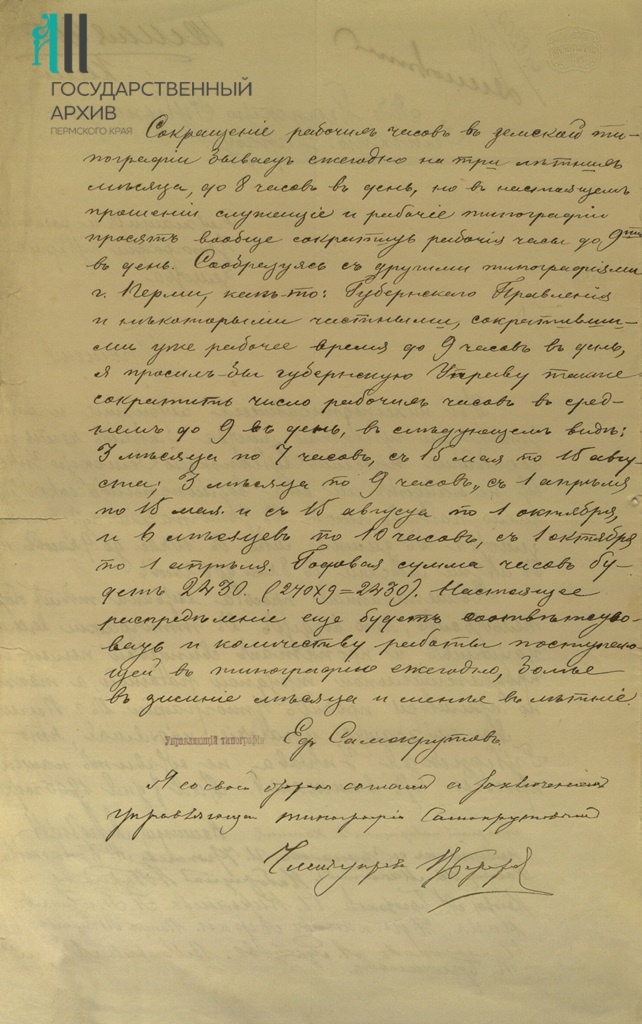 ГОСУДАРСТВЕННЫЙ
АРХИВ
ПЕРМСКОГО КРАЯ
Сокращеніе рабочихъ часовъ въ земской ти-
пографіи бываетъ ежегодно на три лѣтнихъ
мѣсяца, до 8 часовъ въ день, но въ настоящемъ
прошеніи служащіе и рабочіе типографіи
просятъ вообще сократить рабочіе часы до 9ти
въ день. Сообразуясь съ другими типографіями
г. Перми, какъ-то: Губернскаго Правленія
и нѣкоторыми частными, сокративши-
ми уже рабочее время до 9 часовъ въ день,
я просилъ-бы губернскую Управу также
сократить число рабочихъ часовъ въ сред-
немъ до 9 въ день, въ слѣдующемъ видѣ:
3 мѣсяца по 7 часовъ, съ 15 мая по 15 авгу-
ста; 3 мѣсяца по 9 часовъ, съ 1 апрѣля
по 15 мая и съ 15 августа по 1 октября,
и 6 мѣсяцевъ по 10 часовъ, съ 1 октября
по 1 апрѣля. Годовая сумма часовъ бу-
детъ 2430. (270х9=2430). Настоящее
распредѣленіе еще будетъ соотвѣтство-
вать и количеству работы поступаю-
щей въ типографію ежегодно, болѣе
въ зимніе мѣсяца и менѣе въ лѣтніе.
Управляющій типографіи Еф. Самокрутовъ
Я со своей стороны согласенъ съ заключеніемъ
управляющаго типографіи Самокрутовымъ
Членъ управы